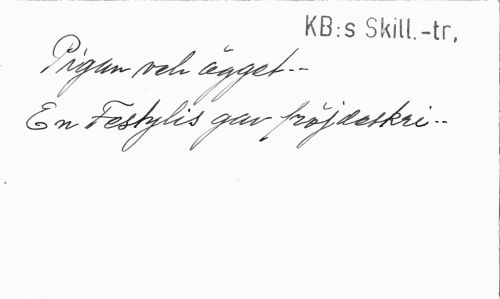 KB:s Skill.-tr.
Pigan och ägget--
En Festylis gav fröjdeskri--